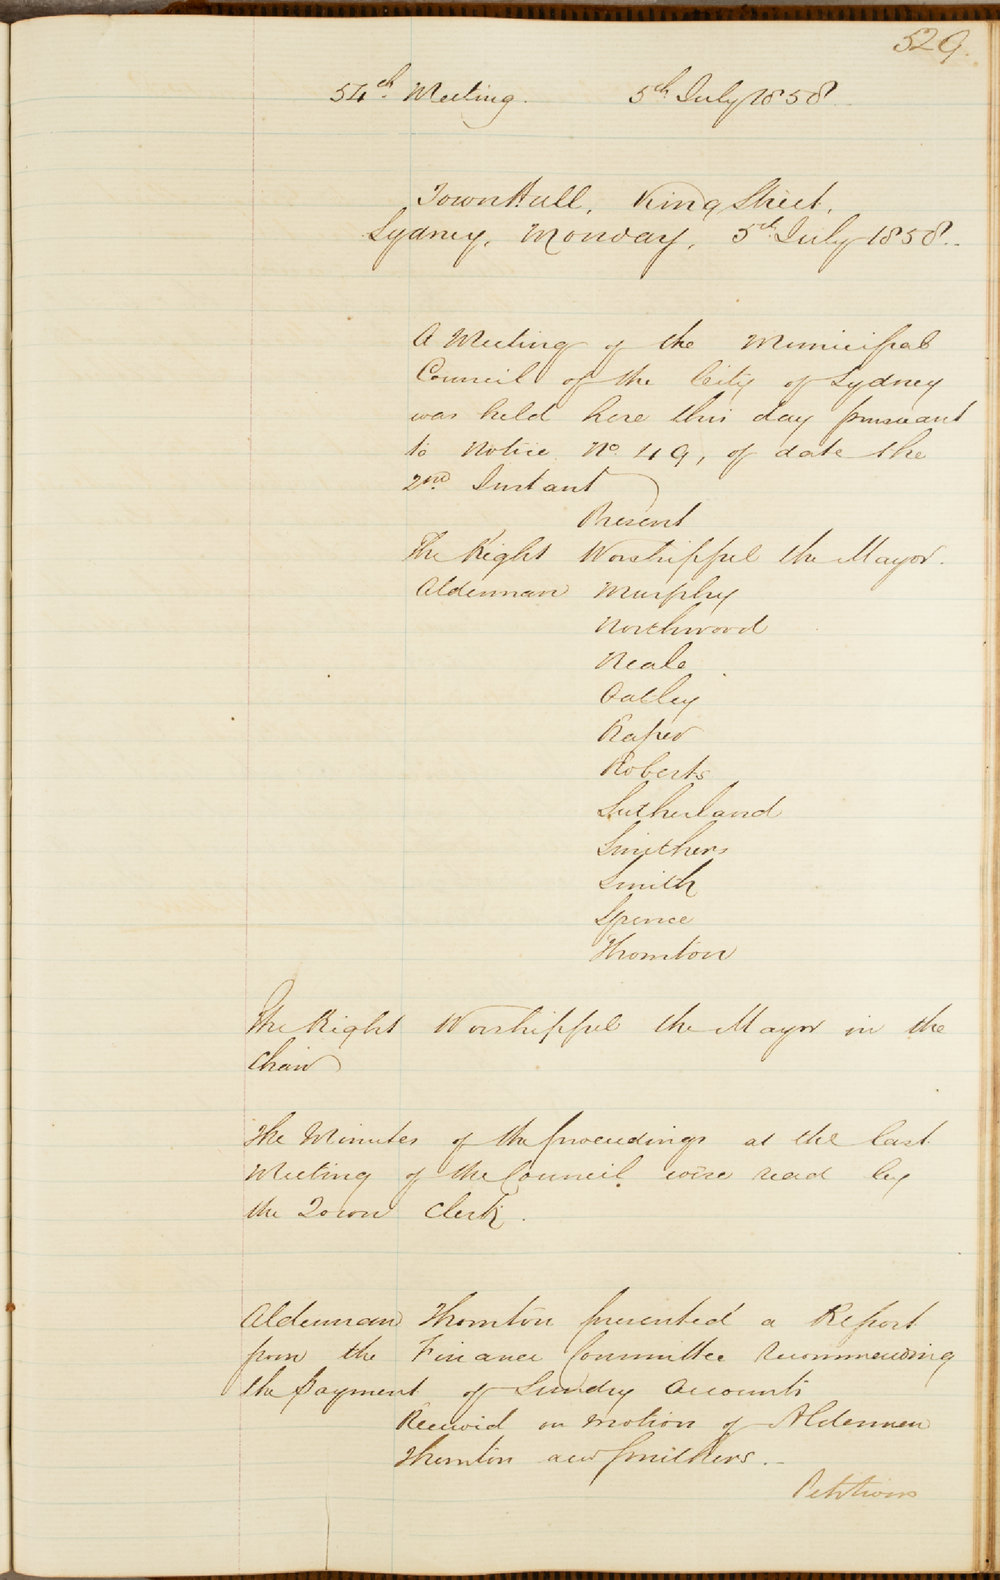 529.
54th Meeting. 5th July 1858
Town Hall, King Street,
Sydney, Monday, 5th July 1858.
A Meeting of the Municipal
Council of the City of Sydney
was held here this day pursuant
to Notice No. 49, of date the
2nd Instant
Present
The Right Worshipful the Mayor.
Alderman Murphy
Northwood
Neale
Oatley
Raper
Roberts
Sutherland
Smithers
Smith
Spence
Thornton
The Right Worshipful the Mayor in the
Chair
The Minutes of the proceedings at the last
Meeting of the Council were read by
the Town Clerk.
Alderman Thornton presented a Report
from the Finance Committee recommending
the payment of Sundry Accounts
Received on motion of Aldermen
Thornton and Smithers.
Petitions